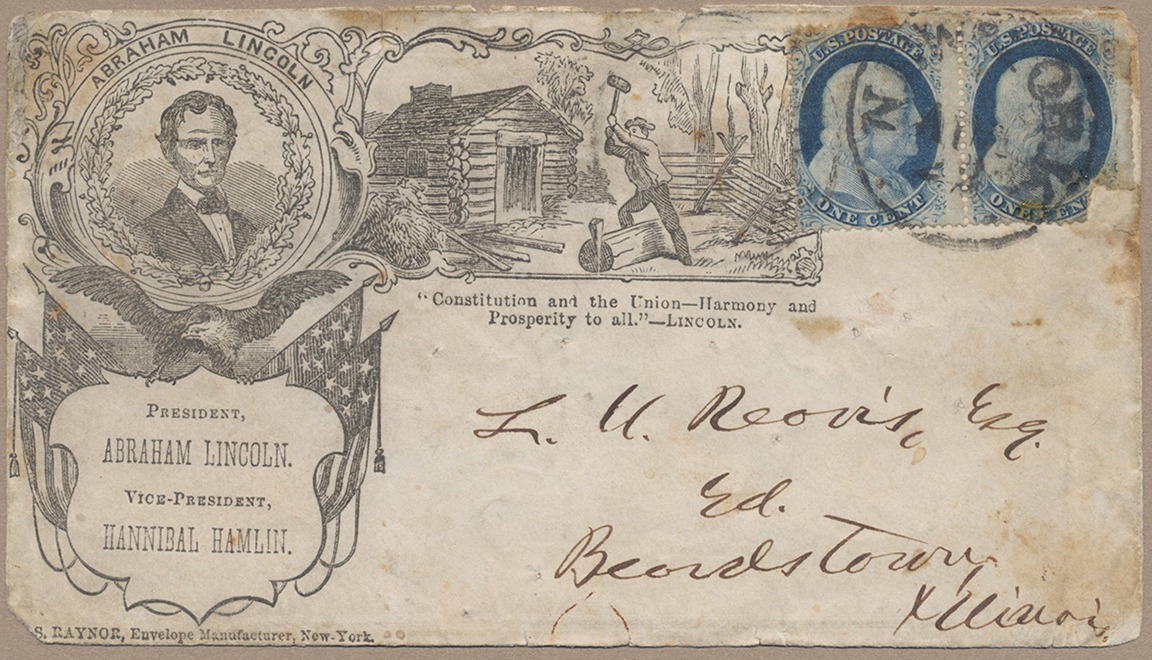 ABRAHAM LINCOLN
U.S. POSTAGE
ONE CENT
U.S. POSTAGE
ONE CEN
N
ORK
"Constitution and the Union—Harmony and
Prosperity to all."—LINCOLN.
PRESIDENT,
ABRAHAM LINCOLN.
VICE-PRESIDENT,
HANNIBAL HAMLIN.
L. U. Reavis, Esq.
Ed.
Beardstown,
Illinois.
S. RAYNOR, Envelope Manufacturer, New-York.